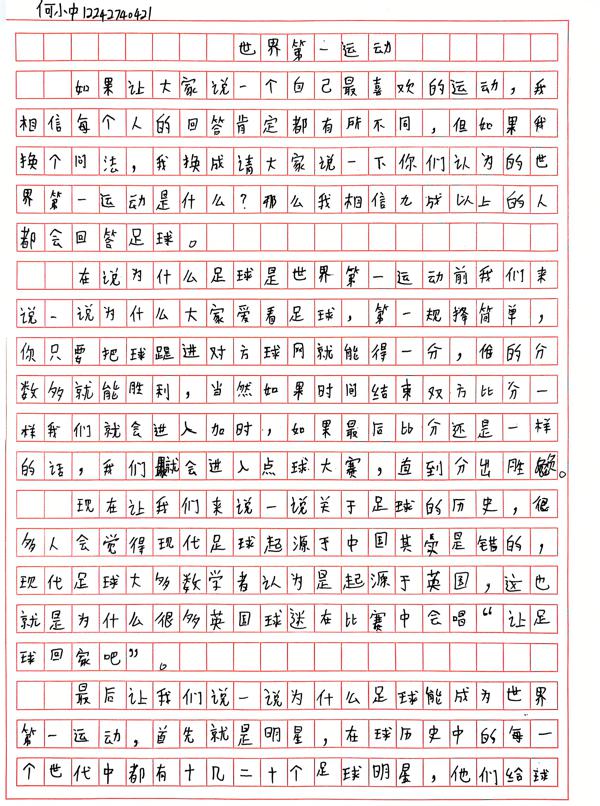 何小中12242740421
世界第一运动
如果让大家说一个自己最喜欢的运动,我
相信每个人的回答肯定都有所不同,但如果我
换个问法,我换成请大家说一下你们认为的世
界第一运动是什么?那么我相信九成以上的人
都会回答足球。
在说为什么足球是世界第一运动前我们来
说一说为什么大家爱看足球,第一规择简单,
你只要把球踢进对方球网就能得一分,谁的分
数多就能胜利,当然如果时间结束双方比分一
样我们就会进入加时,如果最后比分还是一样
的话,我们就会进入点球大赛,直到分出胜负。
现在让我们来说一说关于足球的历史,很
多人会觉得现代足球起源于中国其实是错的,
现代足球大多数学者认为是起源于英国,这也
就是为什么很多英国球迷在比赛中会唱“让足
球回家吧”。
最后让我们说一说为什么足球能成为世界
第一运动,首先就是明星,在球历史中的每一
个世代中都有十几二十个足球明星,他们给球